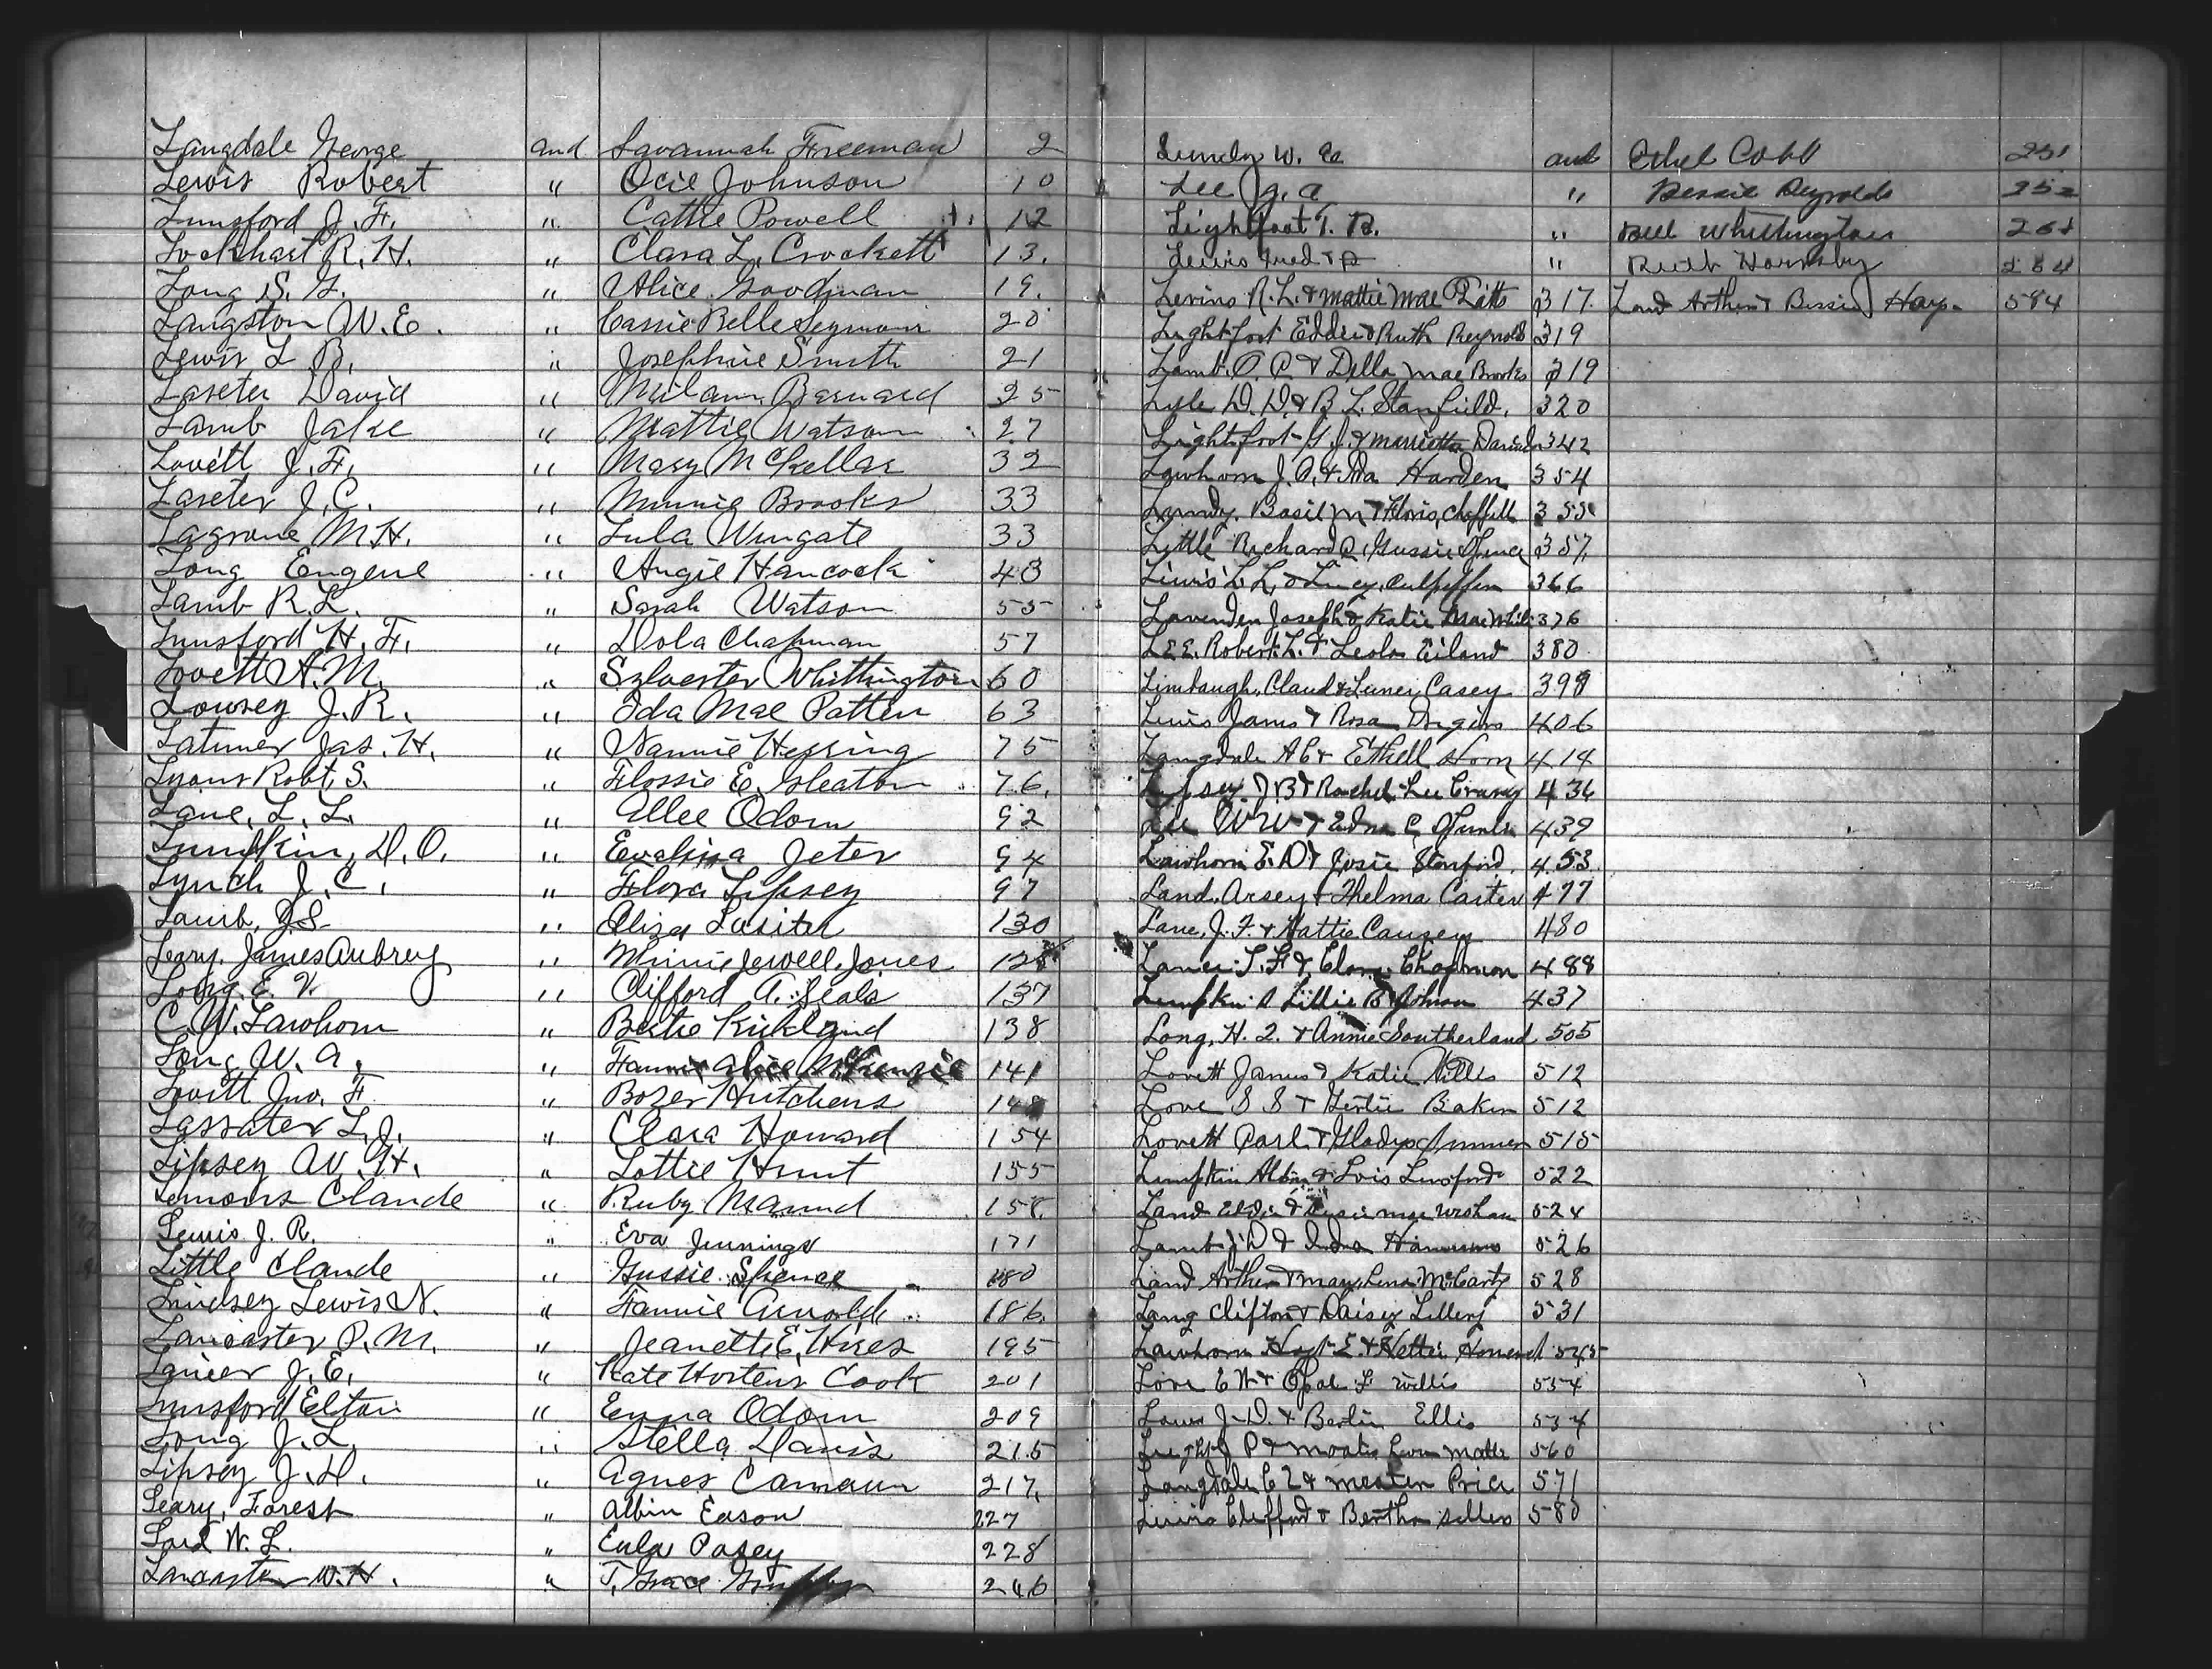 Langdale George and Savannah Freeman 2
Lewis Robert " Ocie Johnson 10
Lunsford J. F. " Cattie Powell 12
Lockhart R. H. " Clara L. Crockett 13.
Long S. G. " Alice Goodman 19.
Langston W. E. " Cassie Belle Seymour 20
Lewis L B. " Josephine Smith 21
Laseter David " Milam Barnard 25
Lamb Jake " Mattie Watson 27
Lovett J. F. " Mary McKellar 32
Laseter J. C. " Minnie Brooks 33
Lagrone M. H. " Lula Wingate 33
Long Eugene " Angie Hancock 43
Lamb R. L. " Sarah Watson 55
Lunsford H. F. " Dola Chapman 57
Lovett A. M. " Sylvester Whittington 60
Lowsey J. R. " Ida Mae Patten 63
Latimer Jas. H. " Nannie Herring 75
Lyons Robt. S. " Flossie E. Gleaton 76.
Lane, L. L. " Ellee Odom 92
Lumpkin, D. O. " Evalina Jeter 94
Lynch J. C. " Flora Lipsey 97
Lamb, J. S. " Eliza 130
Leary, James Aubrey " Minnie Jewell Jones
Long E. V. " Clifford A. Seals 137
C. W. Lawhorn " Bertie Kirkland 138
Long W. A. " Fannie Alice McKenzie 141
Lovett Jno. F. " Bozer Hutchens
Lassater L. J. " Clara Howard 154
Lipsey W. H. " Lottie Hunt 155
Lemons Claude " Ruby Maund 158
Lewis J. R. " Eva Jennings 171
Little Claude " Gussie Spence 180
Lindsey Lewis N. " Fannie Arnold 186.
Lancaster P. M. " Jeanette E. Hires 195
Lanier J. E. " Kate Hortens Cook 201
Lunsford Elton " Emma Odom 209
Long J. L. " Stella Davis 215
Lipsey J. D. " Agnes 217.
Leary, Forest " Albin Eason 227
Lord W. L. " Eula Posey 228
Lancaster W. H. " T. Grace 246
Lundy W. and Ethel Cobb 251
Lee J. A " Bessie Reynolds 252
Lightfoot T. B. " Bell Whittington
Lewis Fred " Ruth Hornsby 284
Levins R. L. & Mattie Mae Pitts 317. Land Arthur & Bessie Hays 584
Lightfoot Eddie & Ruth Reynolds 319
Lamb. O. P. & Della Mae Brooks 319
Lyle D. D. & B. L. Stanfield. 320
Lightfoot G. J. & Marietta 342
Lawhorn J. A. & Ida Harden 354
Lundy. Basil M & Floris 355
Little Richard & Gussie Spence 357.
Lewis L. L. & Lucy Culpepper 366
Lavender Joseph & Katie Mae 376
LEE. Robert. L. & Leola Eiland 380
Limbaugh, Claud & Casey
Lewis James & Rosa 406
Langdale & Ethell Horn 414
Lipsey. J. B & Rachel Lee 436
Lee W W & Edna C. 439
Lawhorn E. D & Josie Stanford. 453
Land, Arsey & Thelma Carter 477
Lane, J. F. & Hattie Causey 480
Lanier T. F & Chapman 488
Lumpkin Lillie B Johnson 437
Long, H. L. & Annie Southerland 505
Lovett James & Katie Willis 512
Love S S & Gertie Baker 512
Lovett Carl & Gladys 515
Lumpkin & Lois Lunsford 522
Land Eldie & Susie Mae 524
Lamb J. D & 526
Land Arthur & Mary Lena McCarty 528
Lang Clifton & Daisey 531
Lawhorn Hoyt E. & Hettie Howard 545
Love E W & Opal F Willis 554
J. D. & Bertie Ellis 534
P & Moatis 560
Langdale & Price 571
Lewis Clifford & Bertha Sellers 580